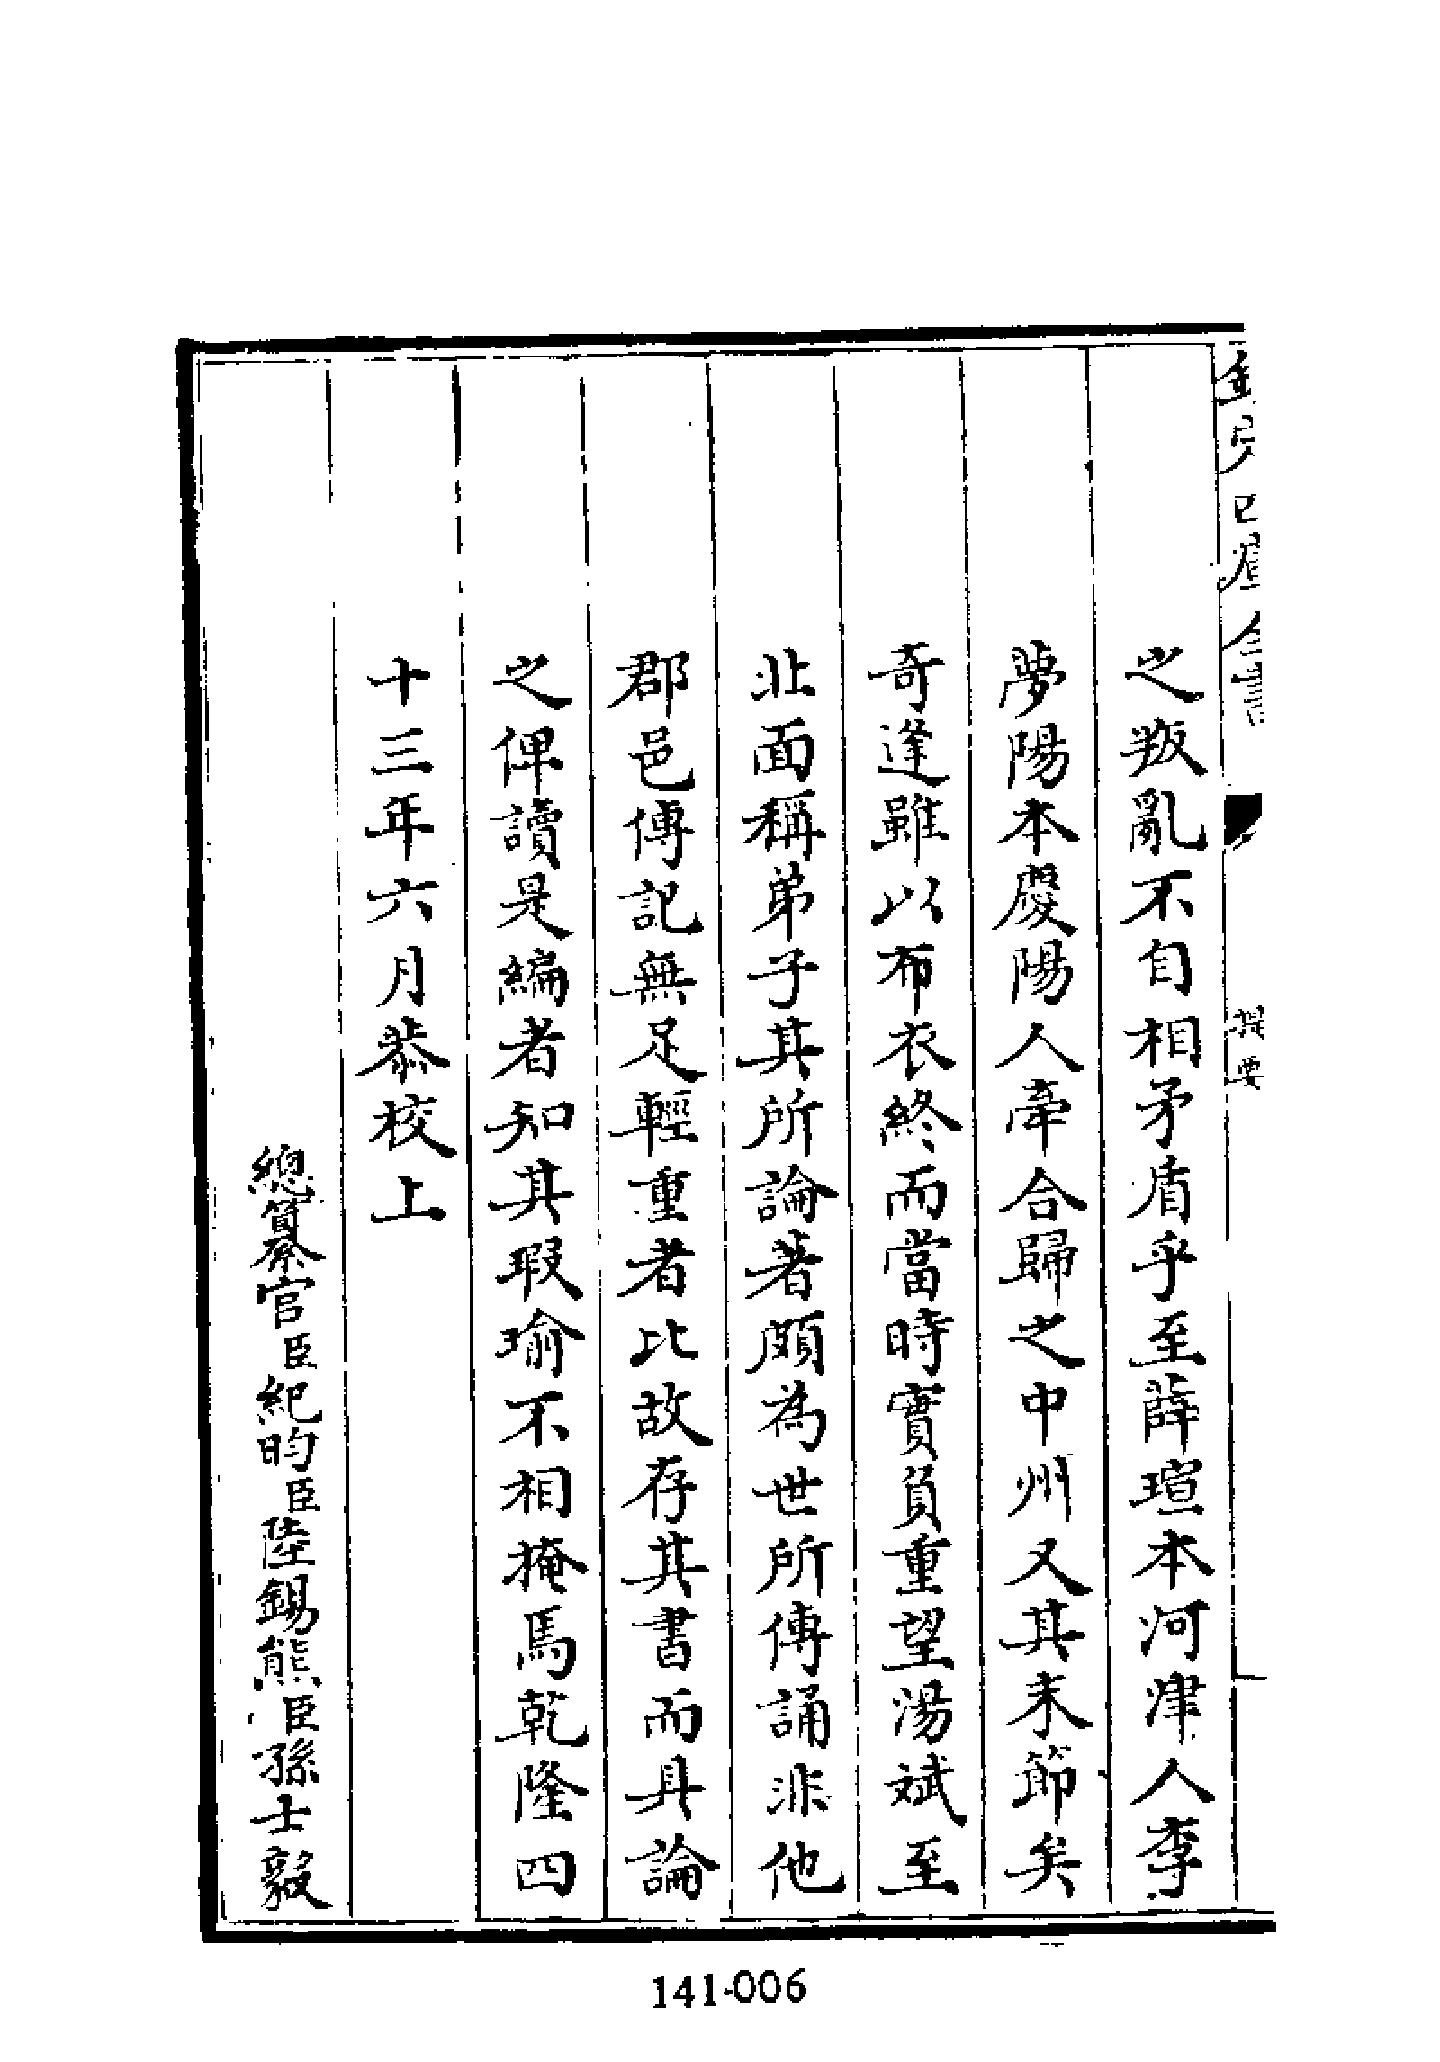 欽定四庫全書
提要
之叛亂不自相矛盾乎至薛瑄本河津人李
夢陽本慶陽人牽合歸之中州又其末節矣
奇逢雖以布衣終而當時實負重望湯斌至
北面稱弟子其所論著頗為世所傳誦非他
郡邑傳記無足輕重者比故存其書而具論
之俾讀是編者知其瑕瑜不相掩焉乾隆四
十三年六月恭校上
總纂官臣紀昀臣陸錫熊臣孫士毅
141-006